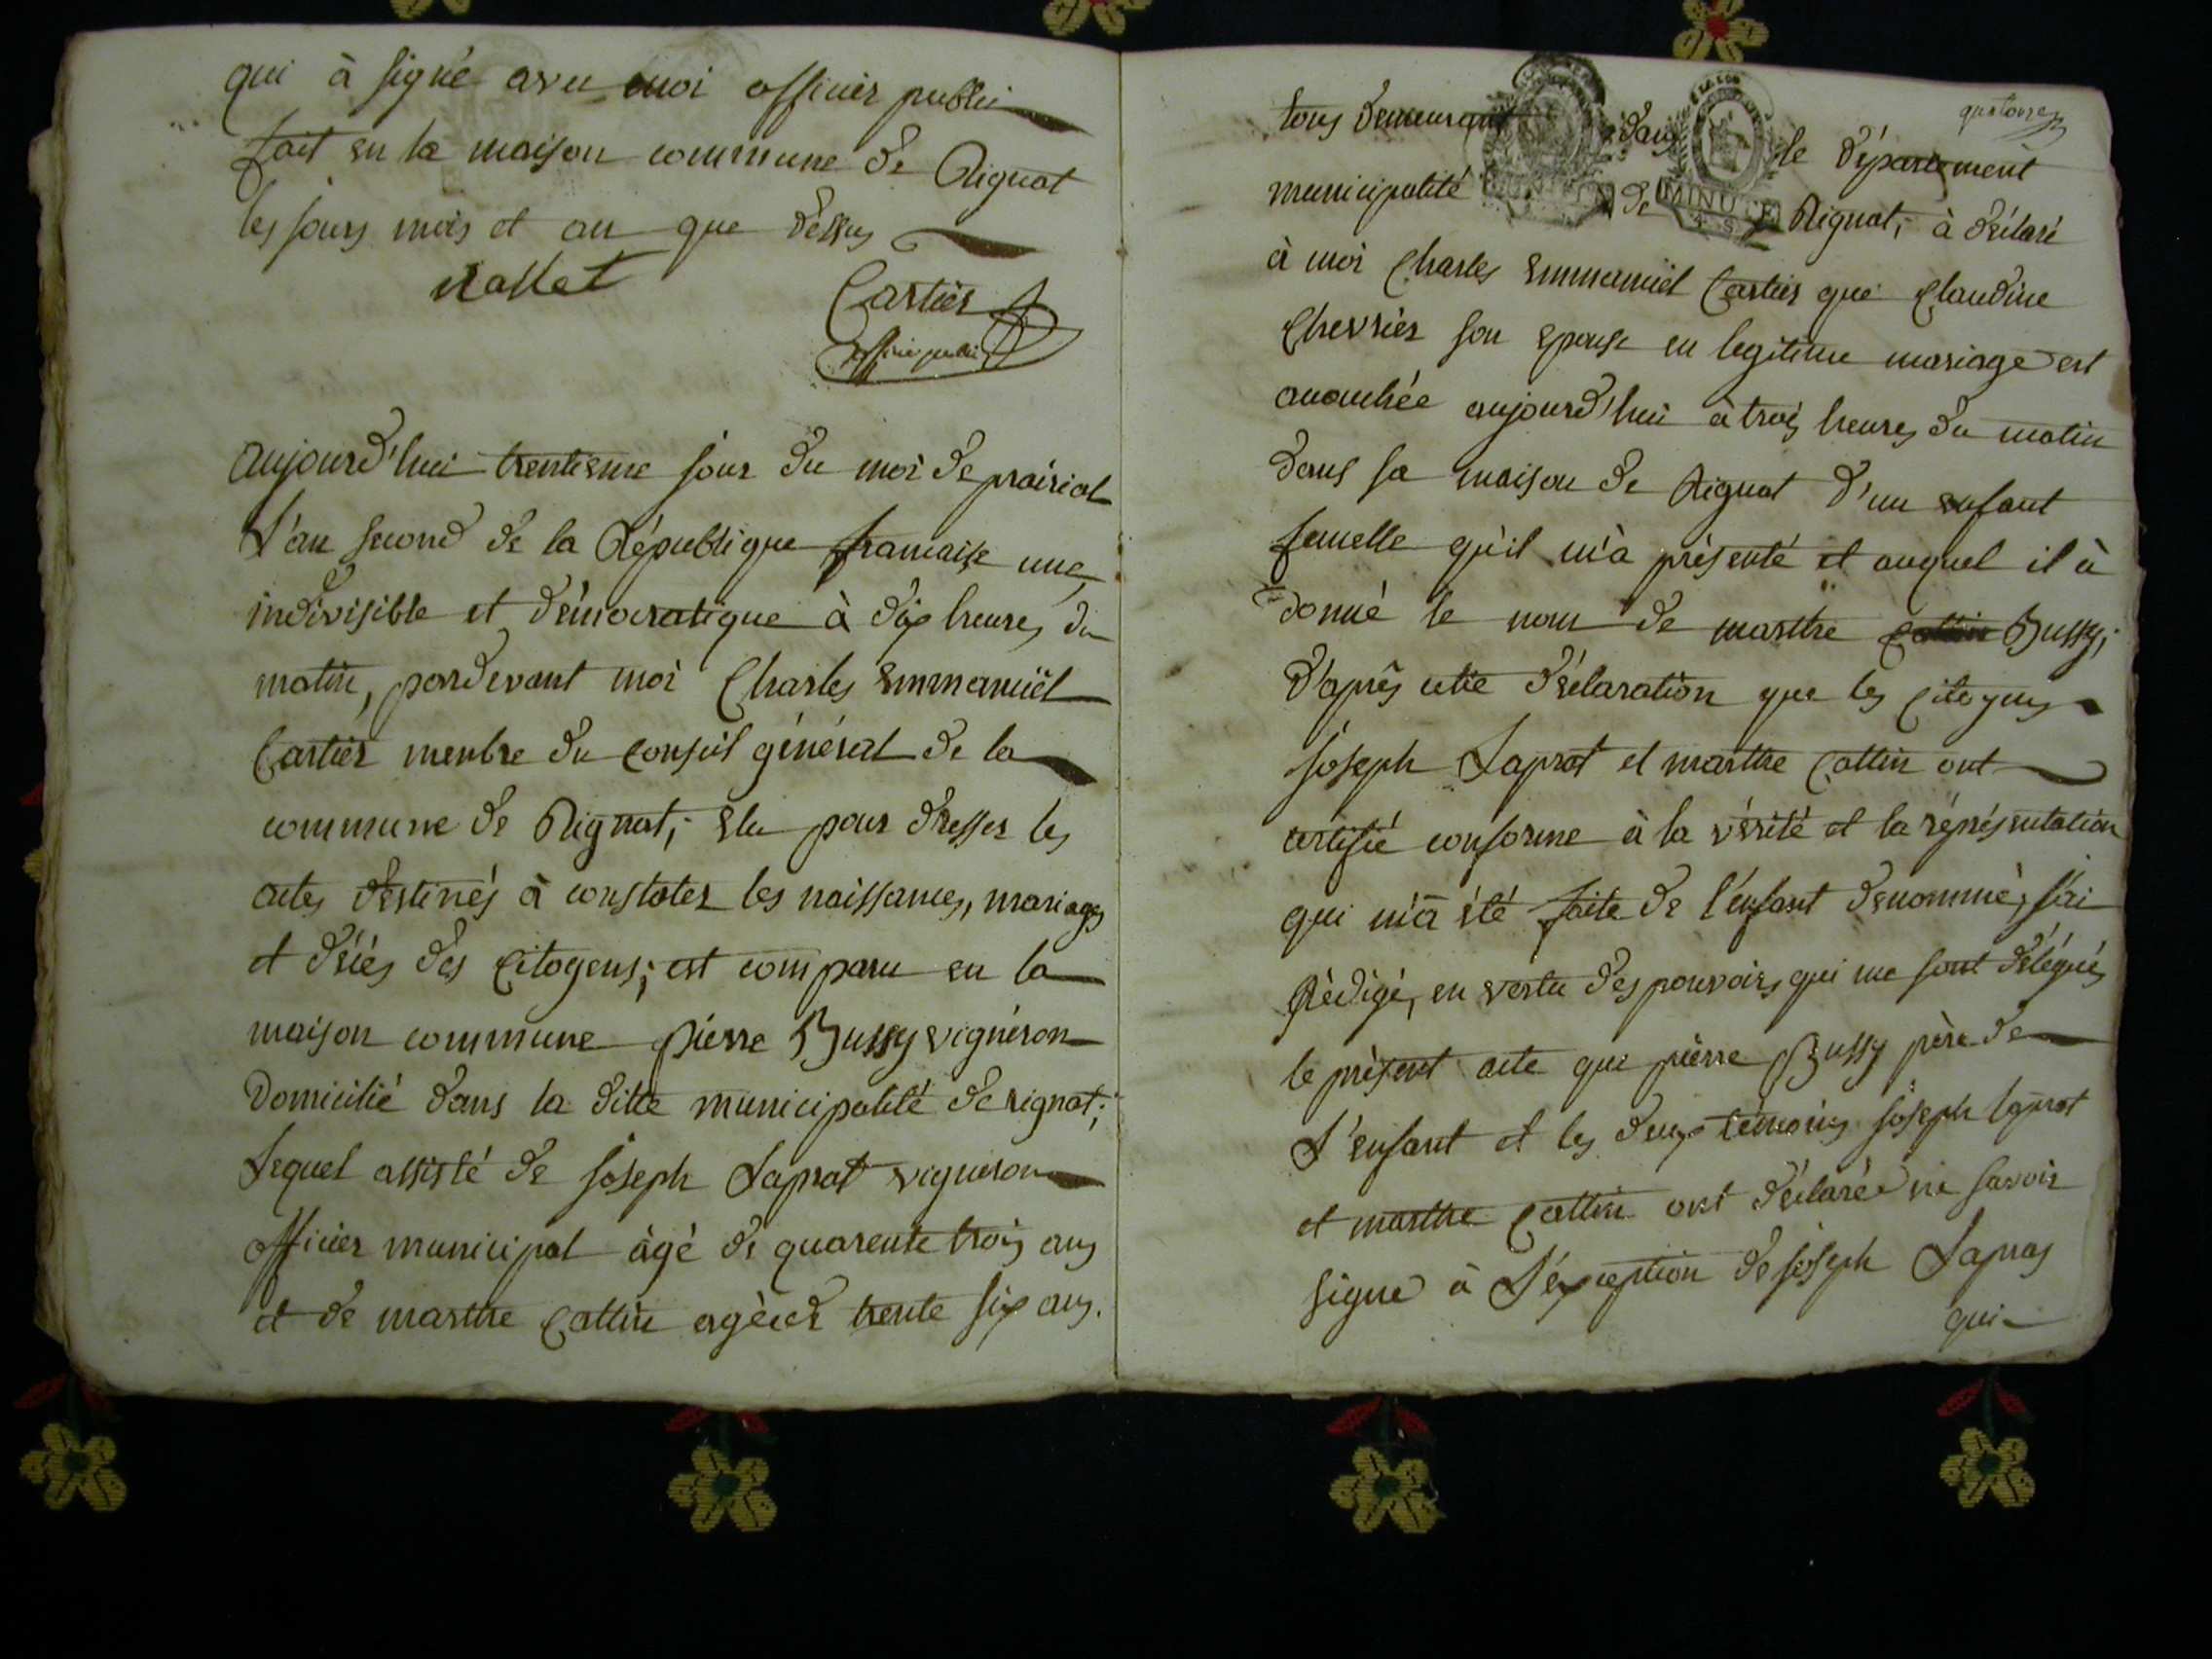 qui à signé avec moi officier public
fait en la maison commune de Rignat
les jours mois et an que dessus
Cartier
officier public
aujourd'hui trentieme jour du moi de prairial
L'an second de la République francaise une,
indivisible et démocratique à dix heures du
matin, pardevant moi Charles Emmanuël
Cartier menbre du Conseil général de la
commune de Rignat, élu pour dresser les
actes destinés à constater les naissances, mariages
et décès des Citoyens; est comparu en la
maison commune pierre Bussy vignéron
domicilié dans la ditte municipalité de rignat;
Lequel assisté de joseph Laprat vigneron
officier municipal âgé de quarente trois ans
et de marthe Cattin agèe de trente six ans.
quatorze
tous demeurant dans le département
municipalité de Rignat, à déclaré
à moi Charles Emmanuël Cartier que Claudine
Chevrier son epouse en legitime mariage est
accouchée aujourd'hui à trois heures du matin
dans sa maison de Rignat d'un enfant
femelle qu'il m'a présenté et auquel il à
donné le nom de marthe Bussy;
D'après cette déclaration que les Citoyens
joseph Laprat et marthe Cattin ont
certifié conforme à la vérité et la réprésentation
qui m'a été faite de l'enfant denommé, j'ai
Rédigé, en vertu des pouvoirs qui me sont délégués
le présent acte que pierre Bussy père de
L'enfant et les deux témoins joseph laprat
et marthe Cattin ont déclaré ne savoir
signe à L'éxception de joseph Lapras
qui
MINUTE
4. S.